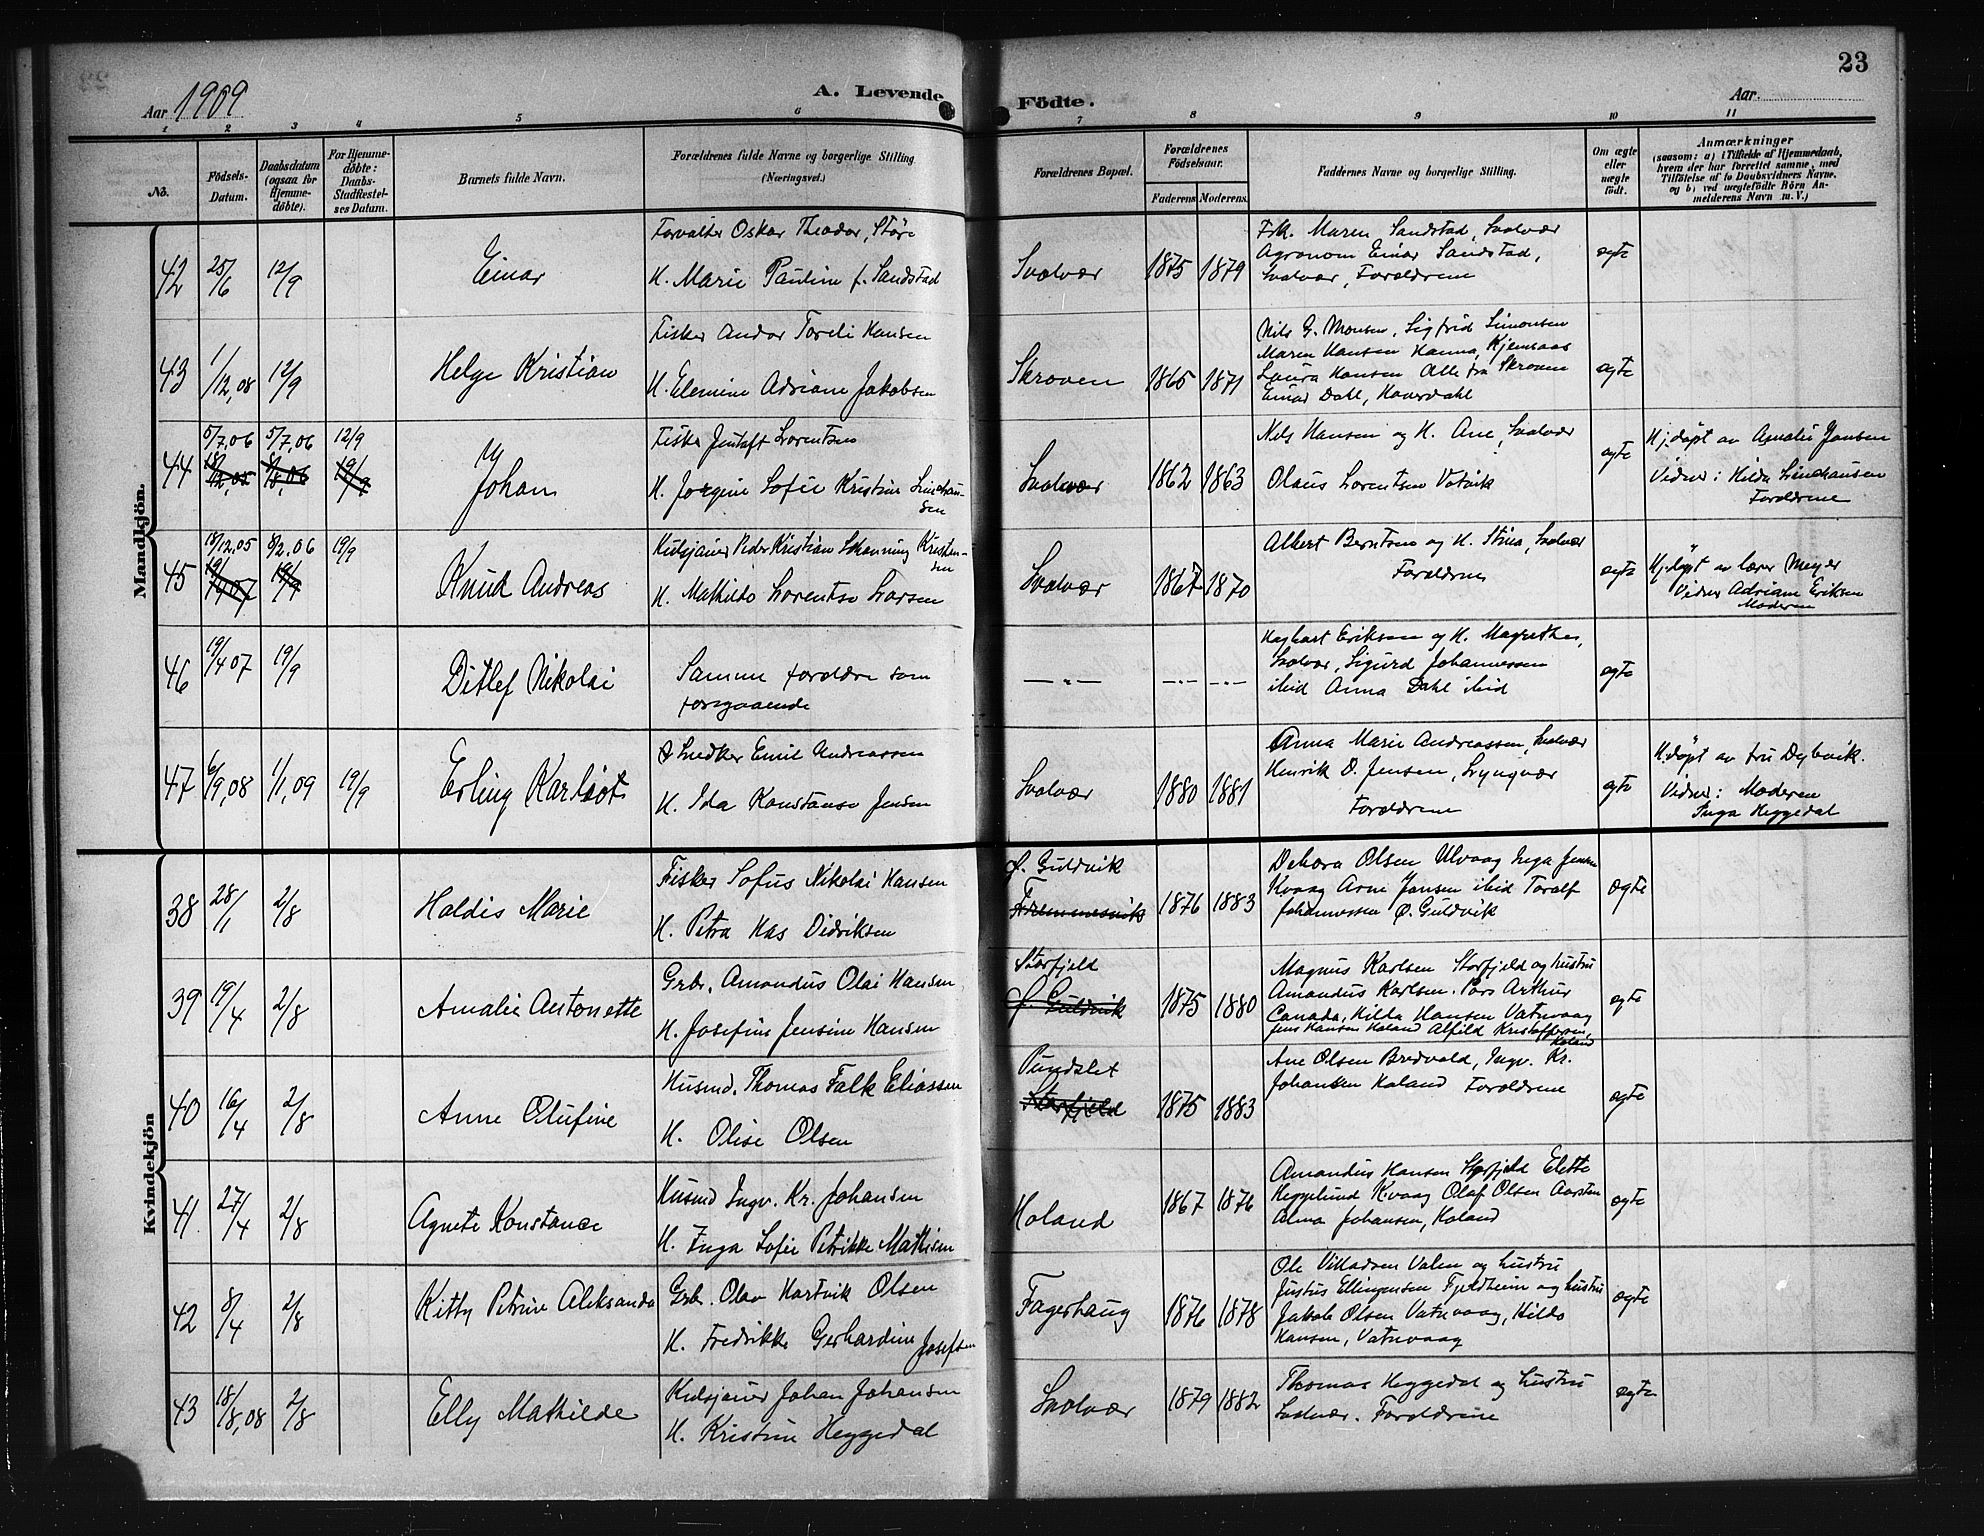 23
Aar 1909
A. Levende
Födte.
Aar.
1 2 3 4 5 6 7 8 9 10 11
No.
Födsels-
Datum.
Daabsdatum
(ogsaa for
Hjemme-
döbte).
For Hjemme-
döbte:
Daabs-
Stadfestel-
ses Datum.
Barnets fulde Navn.
Forældrenes fulde Navne og borgerlige Stilling.
(Næringsvei.)
Forældrenes Bopæl.
Forældrenes
Födselsaar.
Faderens Moderens
Faddernes Navne og borgerlige Stilling.
Om ægte
eller
uægte
födt.
Anmærkninger
(saasom: a) i Tilfælde af Hjemmedaab,
hvem der har forrettet samme, med
Tilföielse af to Daabsvidners Navne,
og b) ved uægtefödte Börn An-
melderens Navn m. V.)
Mandkjön.
42 25/6 12/9 Einar
Forvalter Oskar Theodor, Störe
H. Marie Pauline f. Sandstad
Svolvær 1875 1879
Frk. Maren Sandstad, Svolvær
Agronom Einar Sandstad,
Svolvær, Forældrene
egte
43 1/12,08 12/9 Helge Kristian
Fisker Andor Toreli Hansen
H. Elemine Adriane Jakobsen
Skroven 1865 1871
Nils G. Monsen, Sigfrid Simonsen
Maren Hansen Hanna, Kjemsaas
Laura Hansen Alle fra Skroven
Einar Dahl, Haverdahl
egte
44 5/7,06 5/7,06 12/9
18/12,05 8/2,06 19/9
Johan
Fisker Lorentsen
H. Jorgine Sofie Kristine Lindhau-
sen
Svolvær 1862 1863
Nels Hansen og H. Ane, Svolvær
Olaus Lorentsen Votvik
egte
Hj.döpt av Amalie Jensen
Vidner: Hilda Lindhausen
Forældrene
45 18/12,05 8/2,06 19/9
19/4 07 19/9
Knud Andreas
Kulsjauer Peder Kristian Johanning Kristen-
sen
H. Mathilde Lorentse Larsen
Svolvær 1867 1870
Albert Berntsen og H. Stina, Svolvær
Forældrene
egte
Hj.döpt av lærer Meyer
Vidner Adriane Eriksen
Moderen
46 19/4 07 19/9 Ditlef Nikolai
Samme foreldre som
foregaaende
— " — — " — — " —
Haghart Eriksen og H. Magrethe,
Svolvær, Sigurd Johannessen
ibid Anna Dahl ibid
egte
47 6/9,08 1/1,09 19/9 Erling Karlsöt
Snedker Emil Andreassen
H. Ida Konstanse Jensen
Svolvær 1880 1881
Anna Marie Andreassen, Svolvær
Henrik D. Jensen, Lyngvær
Forældrene
egte
H.döpt av fru Dybvik.
Vidner: Moderen
Inga Heggedal
Kvindekjön
38 28/1 2/8 Haldis Marie
Fisker Sofus Nikolai Hansen
H. Petra Kas Didriksen
Ø. Guldvik
Fremmesvik
1876 1883
Debora Olsen Ulvaag Inga Jensen
Kvaag Arne Jensen ibid Toralf
Johannessen Ø. Guldvik
egte
39 19/4 2/8 Amalie Antonette
Grbr. Amandus Olai Hansen
H. Josefine Jensine Hansen
Storfjeld
Ø. Guldvik
1875 1880
Magnus Karlsen Storfjeld og hustru
Amandus Karlsen. Pors Arthur
Canada, Hilda Hansen Vatnvaag
Jens Hansen Holand Alfild Kristoffersen,
Holand
egte
40 16/4 2/8 Anne Olufine
Husmd. Thomas Falk Eliassen
H. Olise Olsen
Pundslet
Storfjeld
1875 1883
Ane Olsen Bredvold, Ingv. Kr.
Johansen Holand Forældrene
egte
41. 27/4 2/8 Agnete Konstance
Husmd Ingv. Kr. Johansen
H. Inga Sofie Petrikke Mathisen
Holand 1867 1876
Amandus Hansen Storfjeld Elette
Heggelund Kvaag Olaf Olsen Aarsten
Alma Johansen, Holand
egte
42 8/4 2/8 Kitty Petrine Aleksanda
Grbr. Olav Hartvik Olsen
H. Fredrikke Gerhardine Josefsen
Fagerhaug 1876 1878
Ole Villadsen Valen og hustru
Justus Ellingsen Fjeldheim og hustru
Jakob Olsen Vatnvaag, Hilda
Hansen, Vatnvaag
egte
43 18/8,08 2/8 Elly Mathilde
Kulsjauer Johan Johansen
H. Kristine Heggedal
Svolvær 1879 1882
Thomas Heggedal og hustru
Svolvær. Forældrene
egte